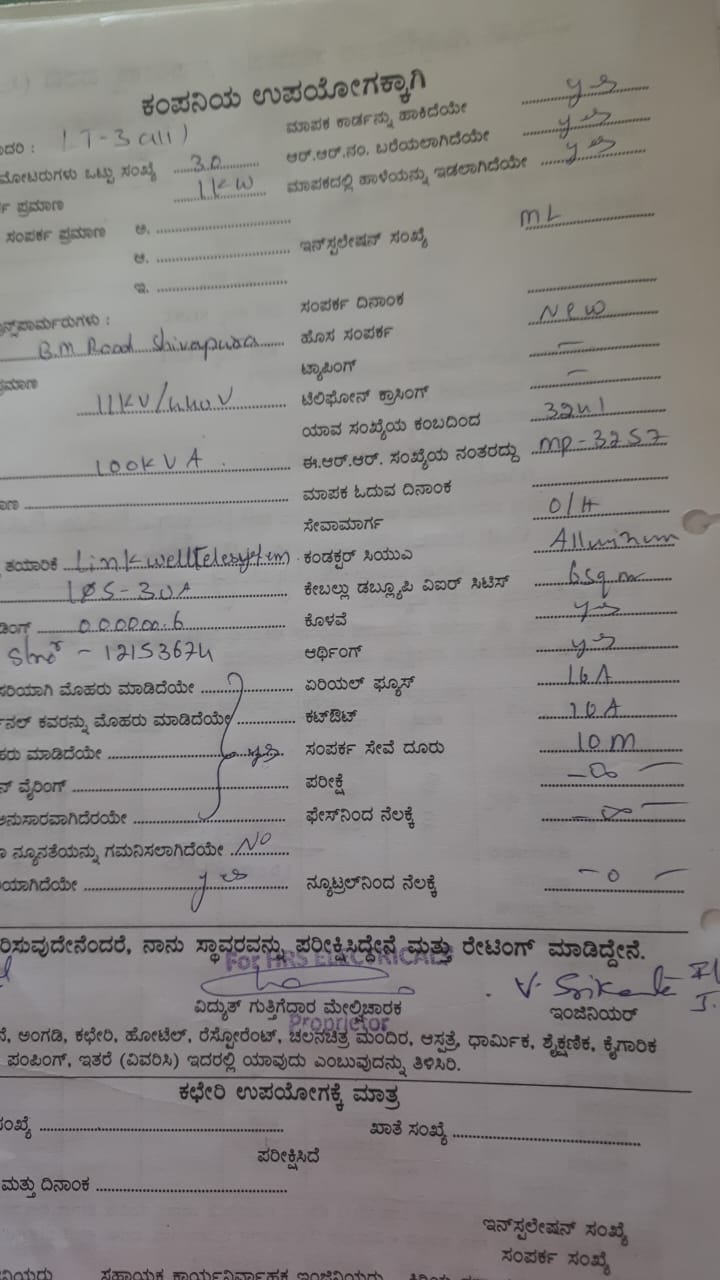 ಕಂಪನಿಯ ಉಪಯೋಗಕ್ಕಾಗಿ
LT-3(ii) ಮಾಪಕ ಕಾರ್ಡನ್ನು ಹಾಕಿದೆಯೇ yes
ಮೋಟರುಗಳು ಒಟ್ಟು ಸಂಖ್ಯೆ 30 ಆರ್.ಆರ್.ನಂ. ಬರೆಯಲಾಗಿದೆಯೇ yes
ಪ್ರಮಾಣ 1KW ಮಾಪಕದಲ್ಲಿ ಹಾಳೆಯನ್ನು ಇಡಲಾಗಿದೆಯೇ yes
ಸಂಪರ್ಕ ಪ್ರಮಾಣ ಅ.
ಆ. ಇನ್‌ಸ್ಟಲೇಷನ್ ಸಂಖ್ಯೆ ML
ಇ.
ಸಂಪರ್ಕ ದಿನಾಂಕ
B.M Road Shivapura ಹೊಸ ಸಂಪರ್ಕ New
ಟ್ಯಾಪಿಂಗ್ —
11KV/440V ಟೆಲಿಫೋನ್ ಕ್ರಾಸಿಂಗ್ —
ಯಾವ ಸಂಖ್ಯೆಯ ಕಂಬದಿಂದ
100KVA ಈ.ಆರ್.ಆರ್. ಸಂಖ್ಯೆಯ ನಂತರದ್ದು MP-3257
ಮಾಪಕ ಓದುವ ದಿನಾಂಕ
ಸೇವಾಮಾರ್ಗ O/H
ತಯಾರಿಕೆ Linkwell Telesystem ಕಂಡಕ್ಟರ್ ಸಿಯುವಿ Alluminum
ಕೇಬಲ್ಲು ಡಬ್ಲ್ಯೂಪಿ ವಿಐರ್ ಸಿಟಿಸ್ 6sq
ಕೊಳವೆ yes
Slno - 12153674 ಆರ್ಥಿಂಗ್ yes
ಸರಿಯಾಗಿ ಮೊಹರು ಮಾಡಿದೆಯೇ ಏರಿಯಲ್ ಫ್ಯೂಸ್ 16A
ಕವರನ್ನು ಮೊಹರು ಮಾಡಿದೆಯೇ ಕಟ್‌ಔಟ್
ಮಾಡಿದೆಯೇ yes ಸಂಪರ್ಕ ಸೇವೆ ದೂರು 10M
ವೈರಿಂಗ್ ಪರೀಕ್ಷೆ
ಫೇಸ್‌ನಿಂದ ನೆಲಕ್ಕೆ
ನ್ಯೂನತೆಯನ್ನು ಗಮನಿಸಲಾಗಿದೆಯೇ NO
yes ನ್ಯೂಟ್ರಲ್‌ನಿಂದ ನೆಲಕ್ಕೆ —0—
ನಾನು ಸ್ಥಾವರವನ್ನು ಪರೀಕ್ಷಿಸಿದ್ದೇನೆ ಮತ್ತು ರೇಟಿಂಗ್ ಮಾಡಿದ್ದೇನೆ.
For HRS ELECTRICALS
V. Srikanta
ವಿದ್ಯುತ್ ಗುತ್ತಿಗೆದಾರ ಮೇಲ್ವಿಚಾರಕ ಇಂಜಿನಿಯರ್
Proprietor
ಅಂಗಡಿ, ಕಛೇರಿ, ಹೋಟೆಲ್, ರೆಸ್ಟೋರೆಂಟ್, ಚಲನಚಿತ್ರ ಮಂದಿರ, ಆಸ್ಪತ್ರೆ, ಧಾರ್ಮಿಕ, ಶೈಕ್ಷಣಿಕ, ಕೈಗಾರಿಕ
ಪಂಪಿಂಗ್, ಇತರೆ (ವಿವರಿಸಿ) ಇದರಲ್ಲಿ ಯಾವುದು ಎಂಬುವುದನ್ನು ತಿಳಿಸಿರಿ.
ಕಛೇರಿ ಉಪಯೋಗಕ್ಕೆ ಮಾತ್ರ
ಖಾತೆ ಸಂಖ್ಯೆ
ಪರೀಕ್ಷಿಸಿದೆ
ಮತ್ತು ದಿನಾಂಕ
ಇನ್‌ಸ್ಪಲೇಷನ್ ಸಂಖ್ಯೆ
ಸಂಪರ್ಕ ಸಂಖ್ಯೆ
ಸಹಾಯಕ ಕಾರ್ಯನಿರ್ವಾಹಕ ಇಂಜಿನಿಯರು